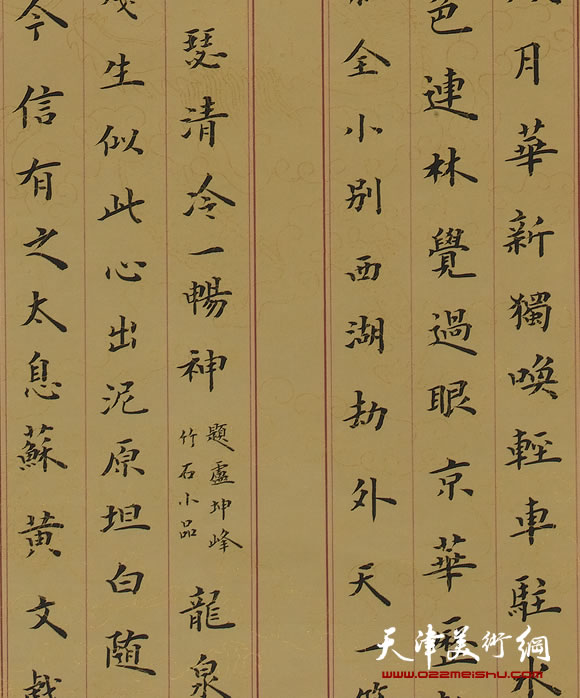 月華新獨喚輕車駐水
色連林覺過眼京華
全小別西湖劫外天一
瑟清冷一暢神
題盧坤峰
竹石小品
龍泉
生似此心出泥原坦白随
今信有之太息蘇黃文戲
天津美術網
www.022meishu.com